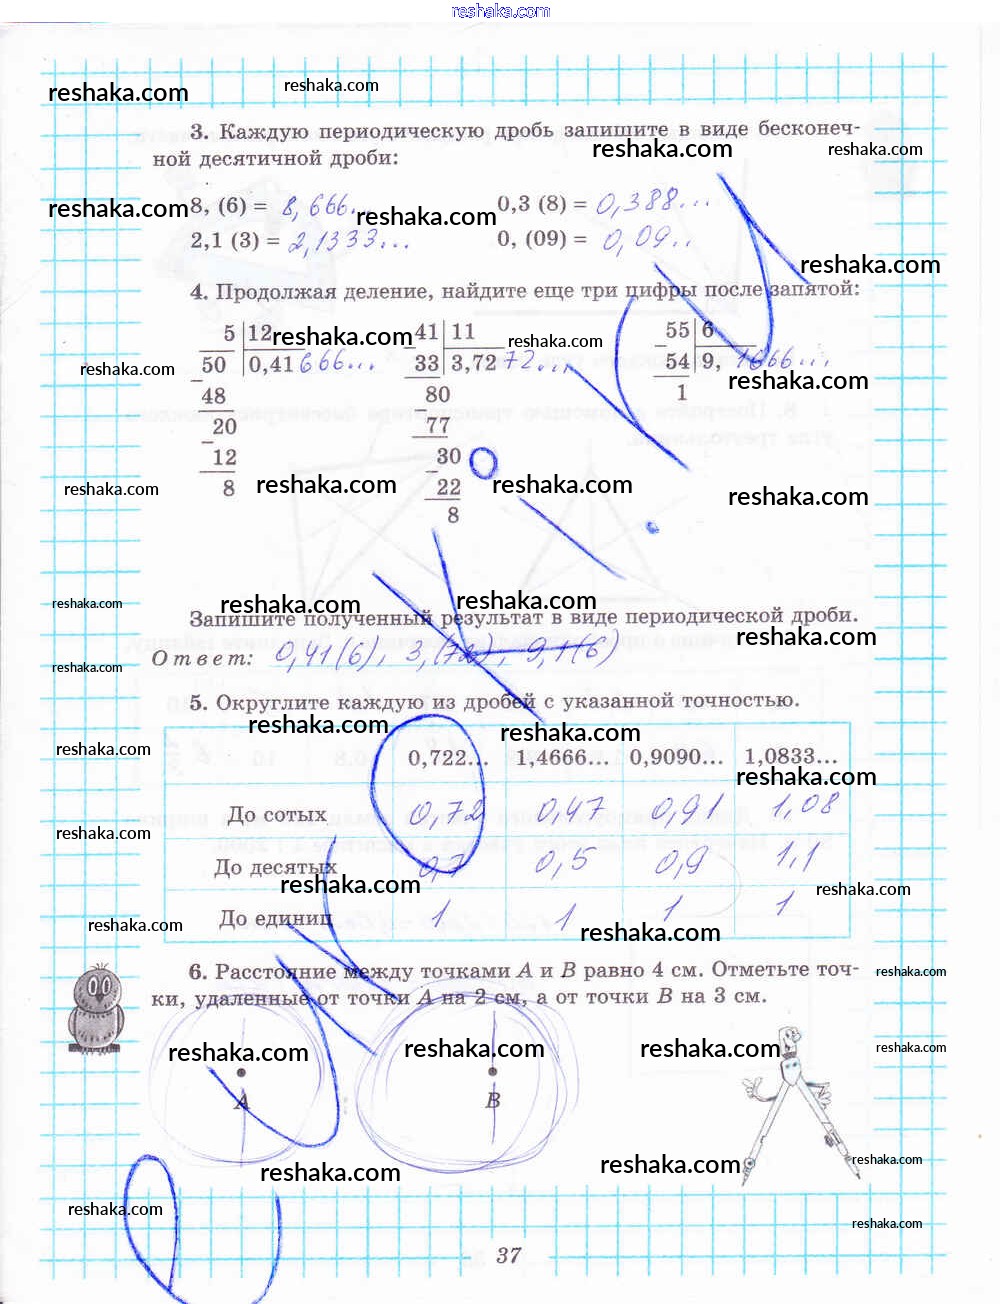 reshaka.com
reshaka.com reshaka.com
3. Каждую периодическую дробь запишите в виде бесконеч-
reshaka.com reshaka.com
ной десятичной дроби:
8, (6) = 8,666... 0,3 (8) = 0,388...
reshaka.com reshaka.com
2,1 (3) = 2,1333... 0, (09) = 0,09..
reshaka.com
4. Продолжая деление, найдите еще три цифры после запятой:
5 12 41 11 55 6
reshaka.com reshaka.com
50 0,41 666... 33 3,72 72... 54 9, 1666...
reshaka.com reshaka.com
48 80 1
20 77
12 30
8 22
reshaka.com reshaka.com reshaka.com reshaka.com
8
reshaka.com reshaka.com reshaka.com
Запишите полученный результат в виде периодической дроби.
reshaka.com
Ответ: 0,41(6), 3,(72), 9,1(6)
reshaka.com
5. Округлите каждую из дробей с указанной точностью.
reshaka.com reshaka.com
reshaka.com
0,722... 1,4666... 0,9090... 1,0833...
reshaka.com
До сотых 0,72 0,47 0,91 1,08
reshaka.com
До десятых 0,7 0,5 0,9 1,1
reshaka.com reshaka.com
До единиц 1 1 1 1
reshaka.com reshaka.com
6. Расстояние между точками A и B равно 4 см. Отметьте точ-
reshaka.com
ки, удаленные от точки A на 2 см, а от точки B на 3 см.
reshaka.com reshaka.com reshaka.com reshaka.com
A B
reshaka.com reshaka.com reshaka.com
reshaka.com reshaka.com
37